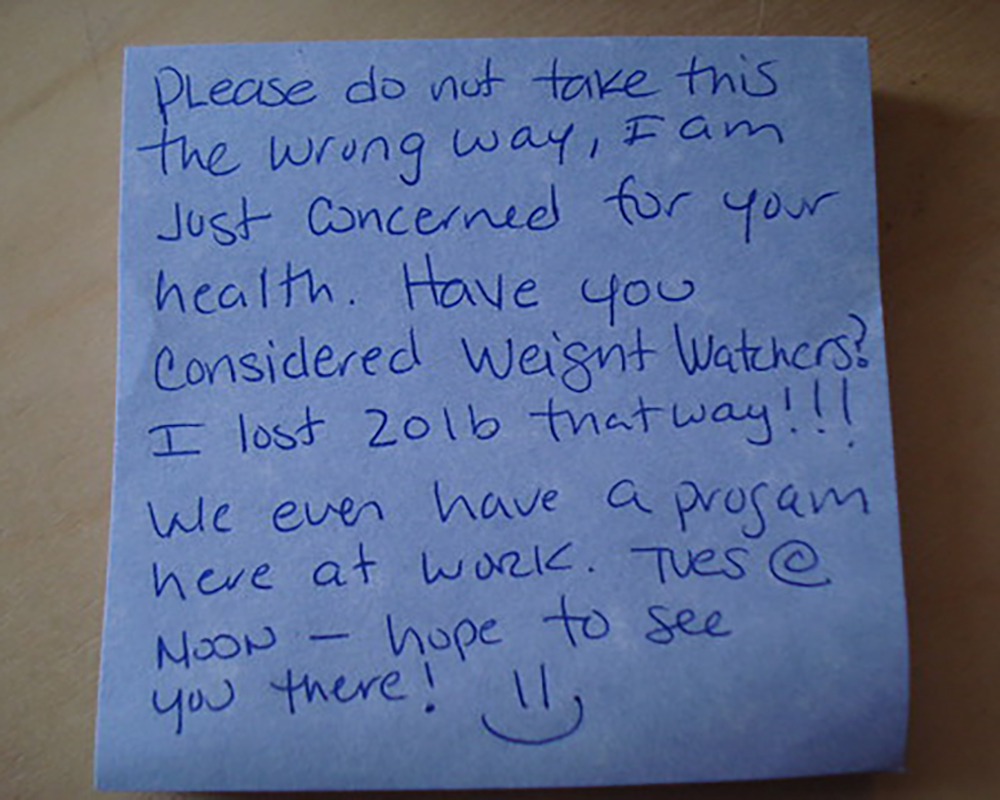 Please do not take this
the wrong way, I am
Just concerned for your
health. Have you
Considered Weight Watchers?
I lost 20lb that way!!!
We even have a progam
here at work. Tues @
Noon – hope to see
you there!